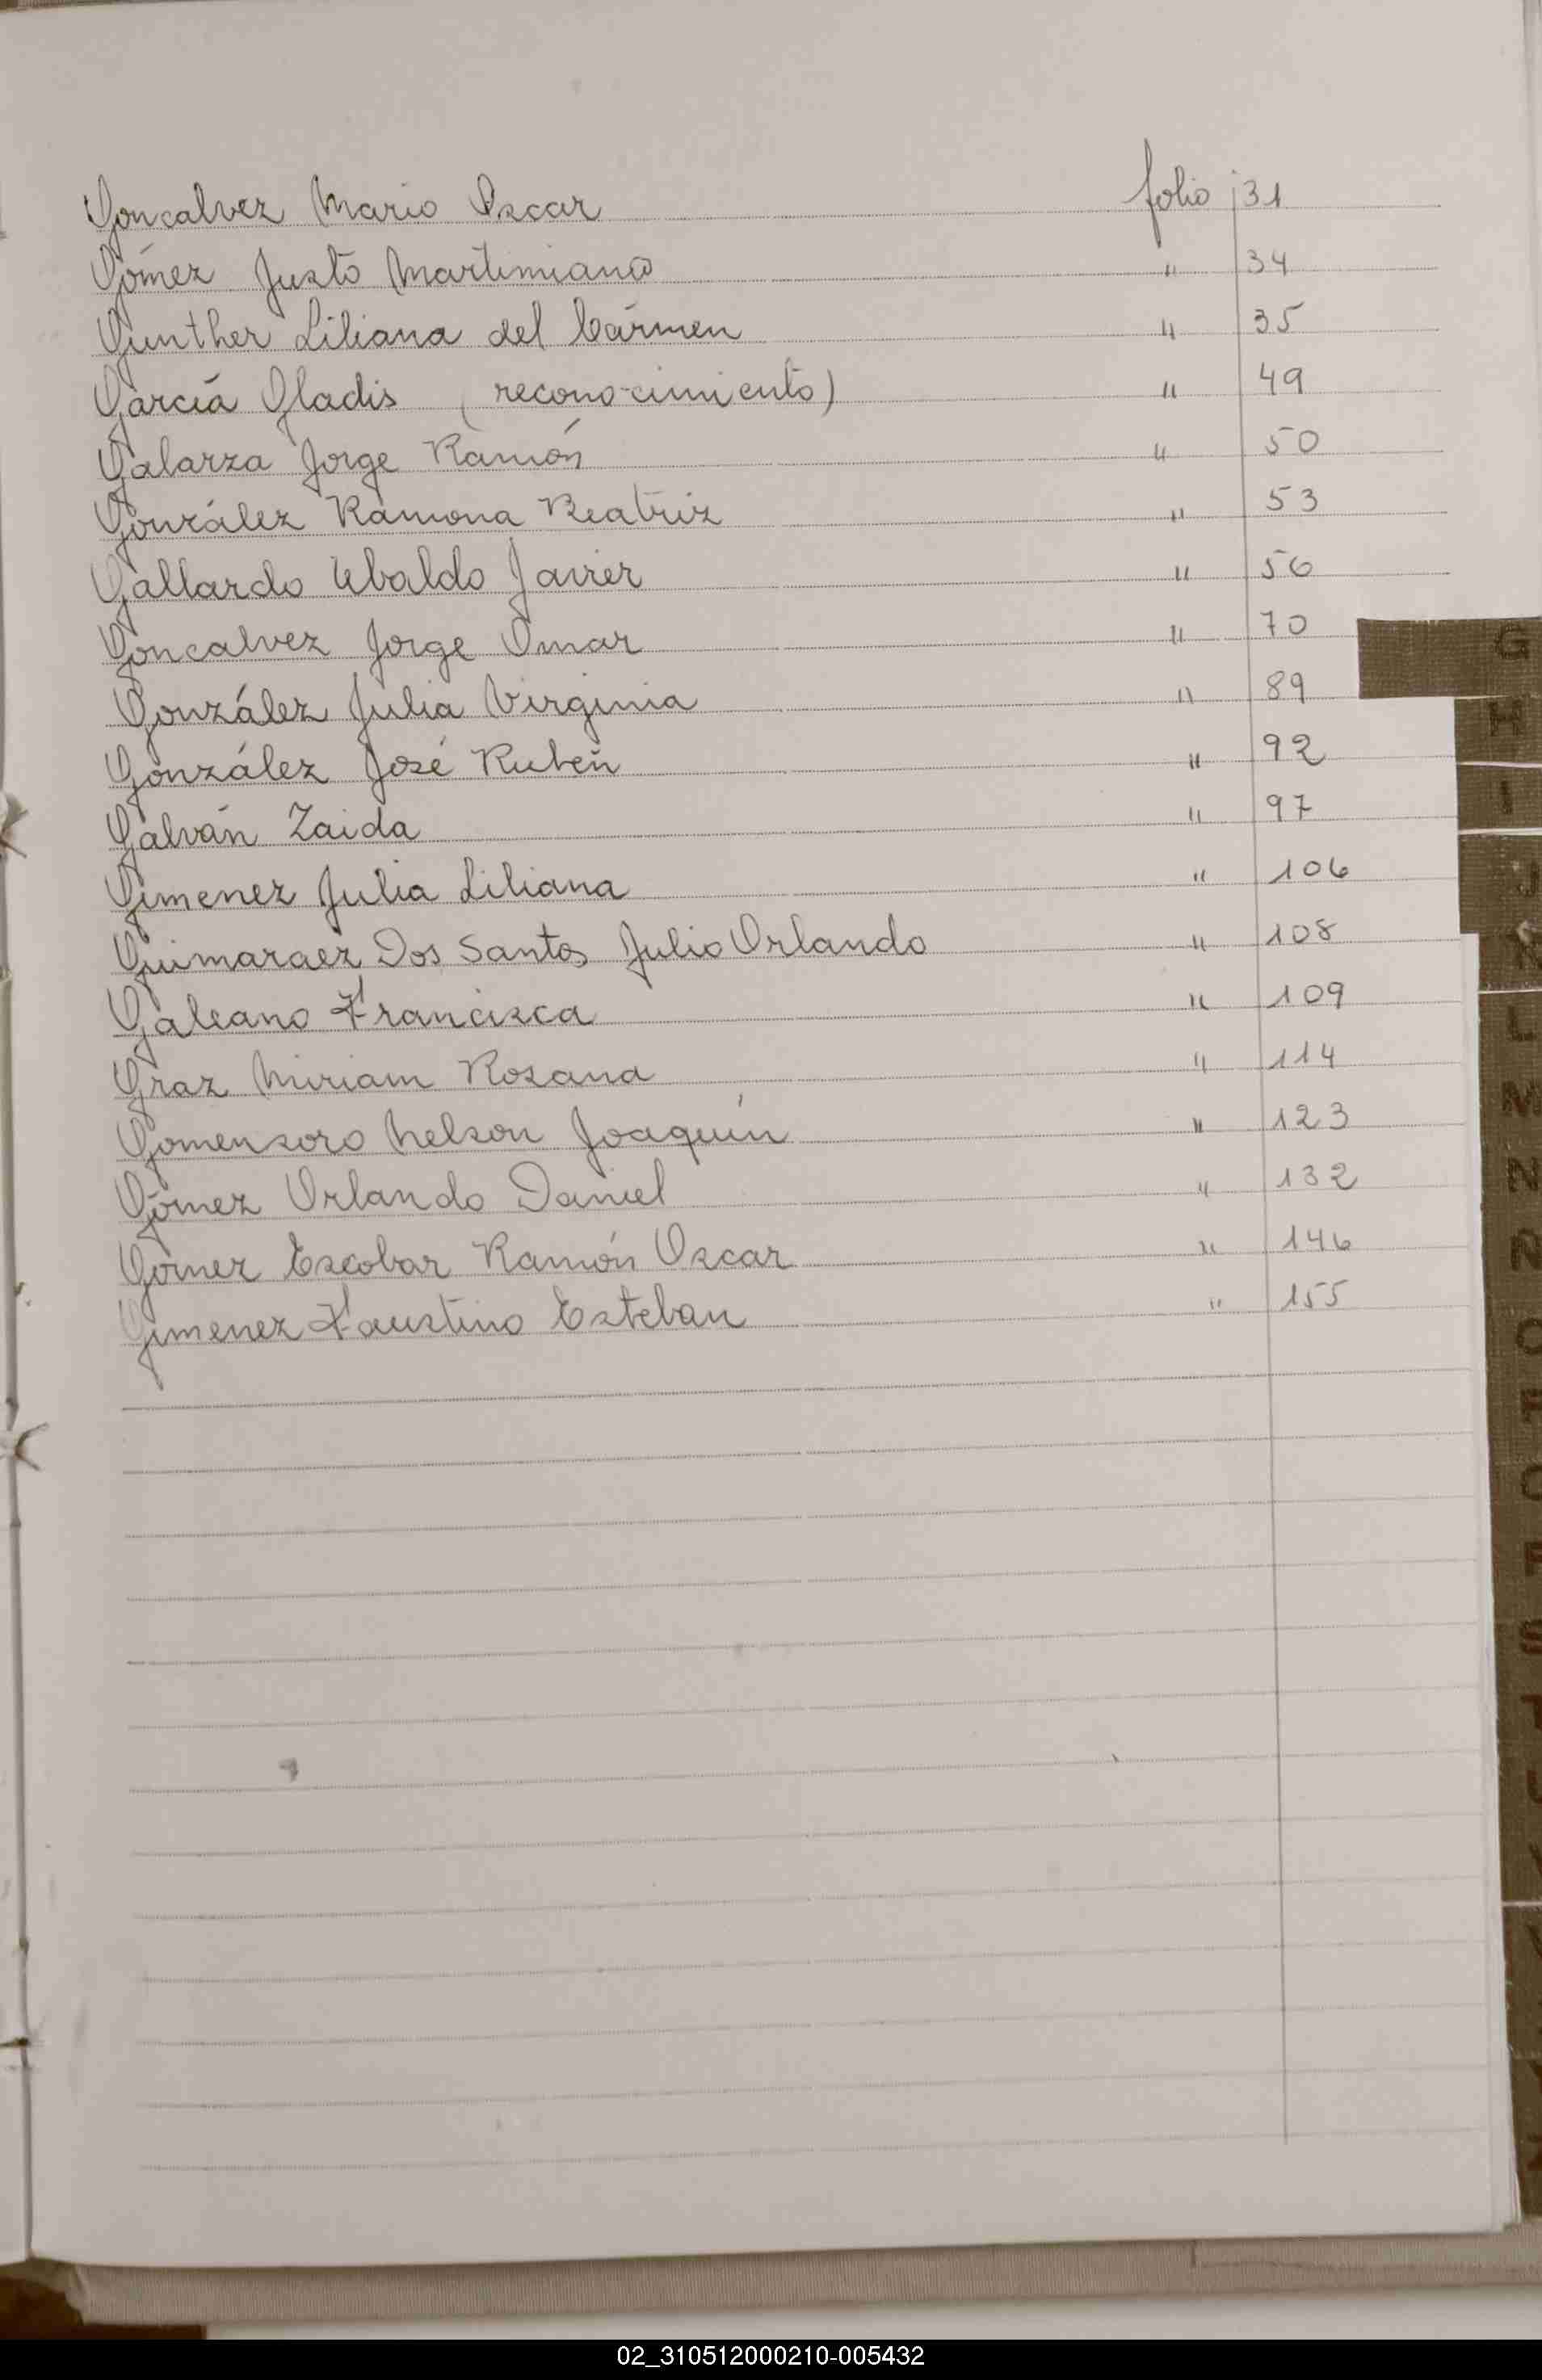 Goncalvez Mario Oscar folio 31
Gómez Justo Martimiano " 34
Gunther Liliana del Cármen " 35
García Gladis (reconocimiento) " 49
Galarza Jorge Ramón " 50
González Ramona Beatriz " 53
Gallardo Ubaldo Javier " 56
Goncalvez Jorge Omar " 70
González Julia Virginia " 89
González José Rubén " 92
Galván Zaida " 97
Gimenez Julia Liliana " 106
Guimaraez Dos Santos Julio Orlando " 108
Galeano Francisca " 109
Graz Miriam Rosana " 114
Gomensoro Nelson Joaquín " 123
Gómez Orlando Daniel " 132
Gómez Escobar Ramón Oscar " 146
Gimenez Faustino Esteban " 155
G
H
I
J
L
M
N
02_310512000210-005432